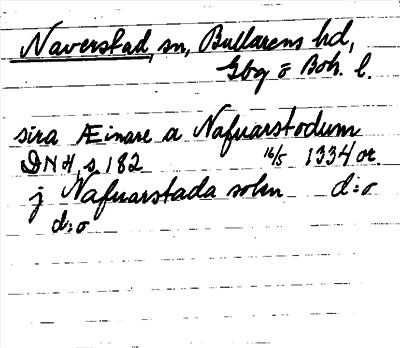 Naverstad, sn, Bullarens hd,
Gbg o Boh. l.
sira Æinare a Nafuarstodum
DN 4, s 182 16/5 1334 or.
j Nafuarstada sokn d:o
d:o